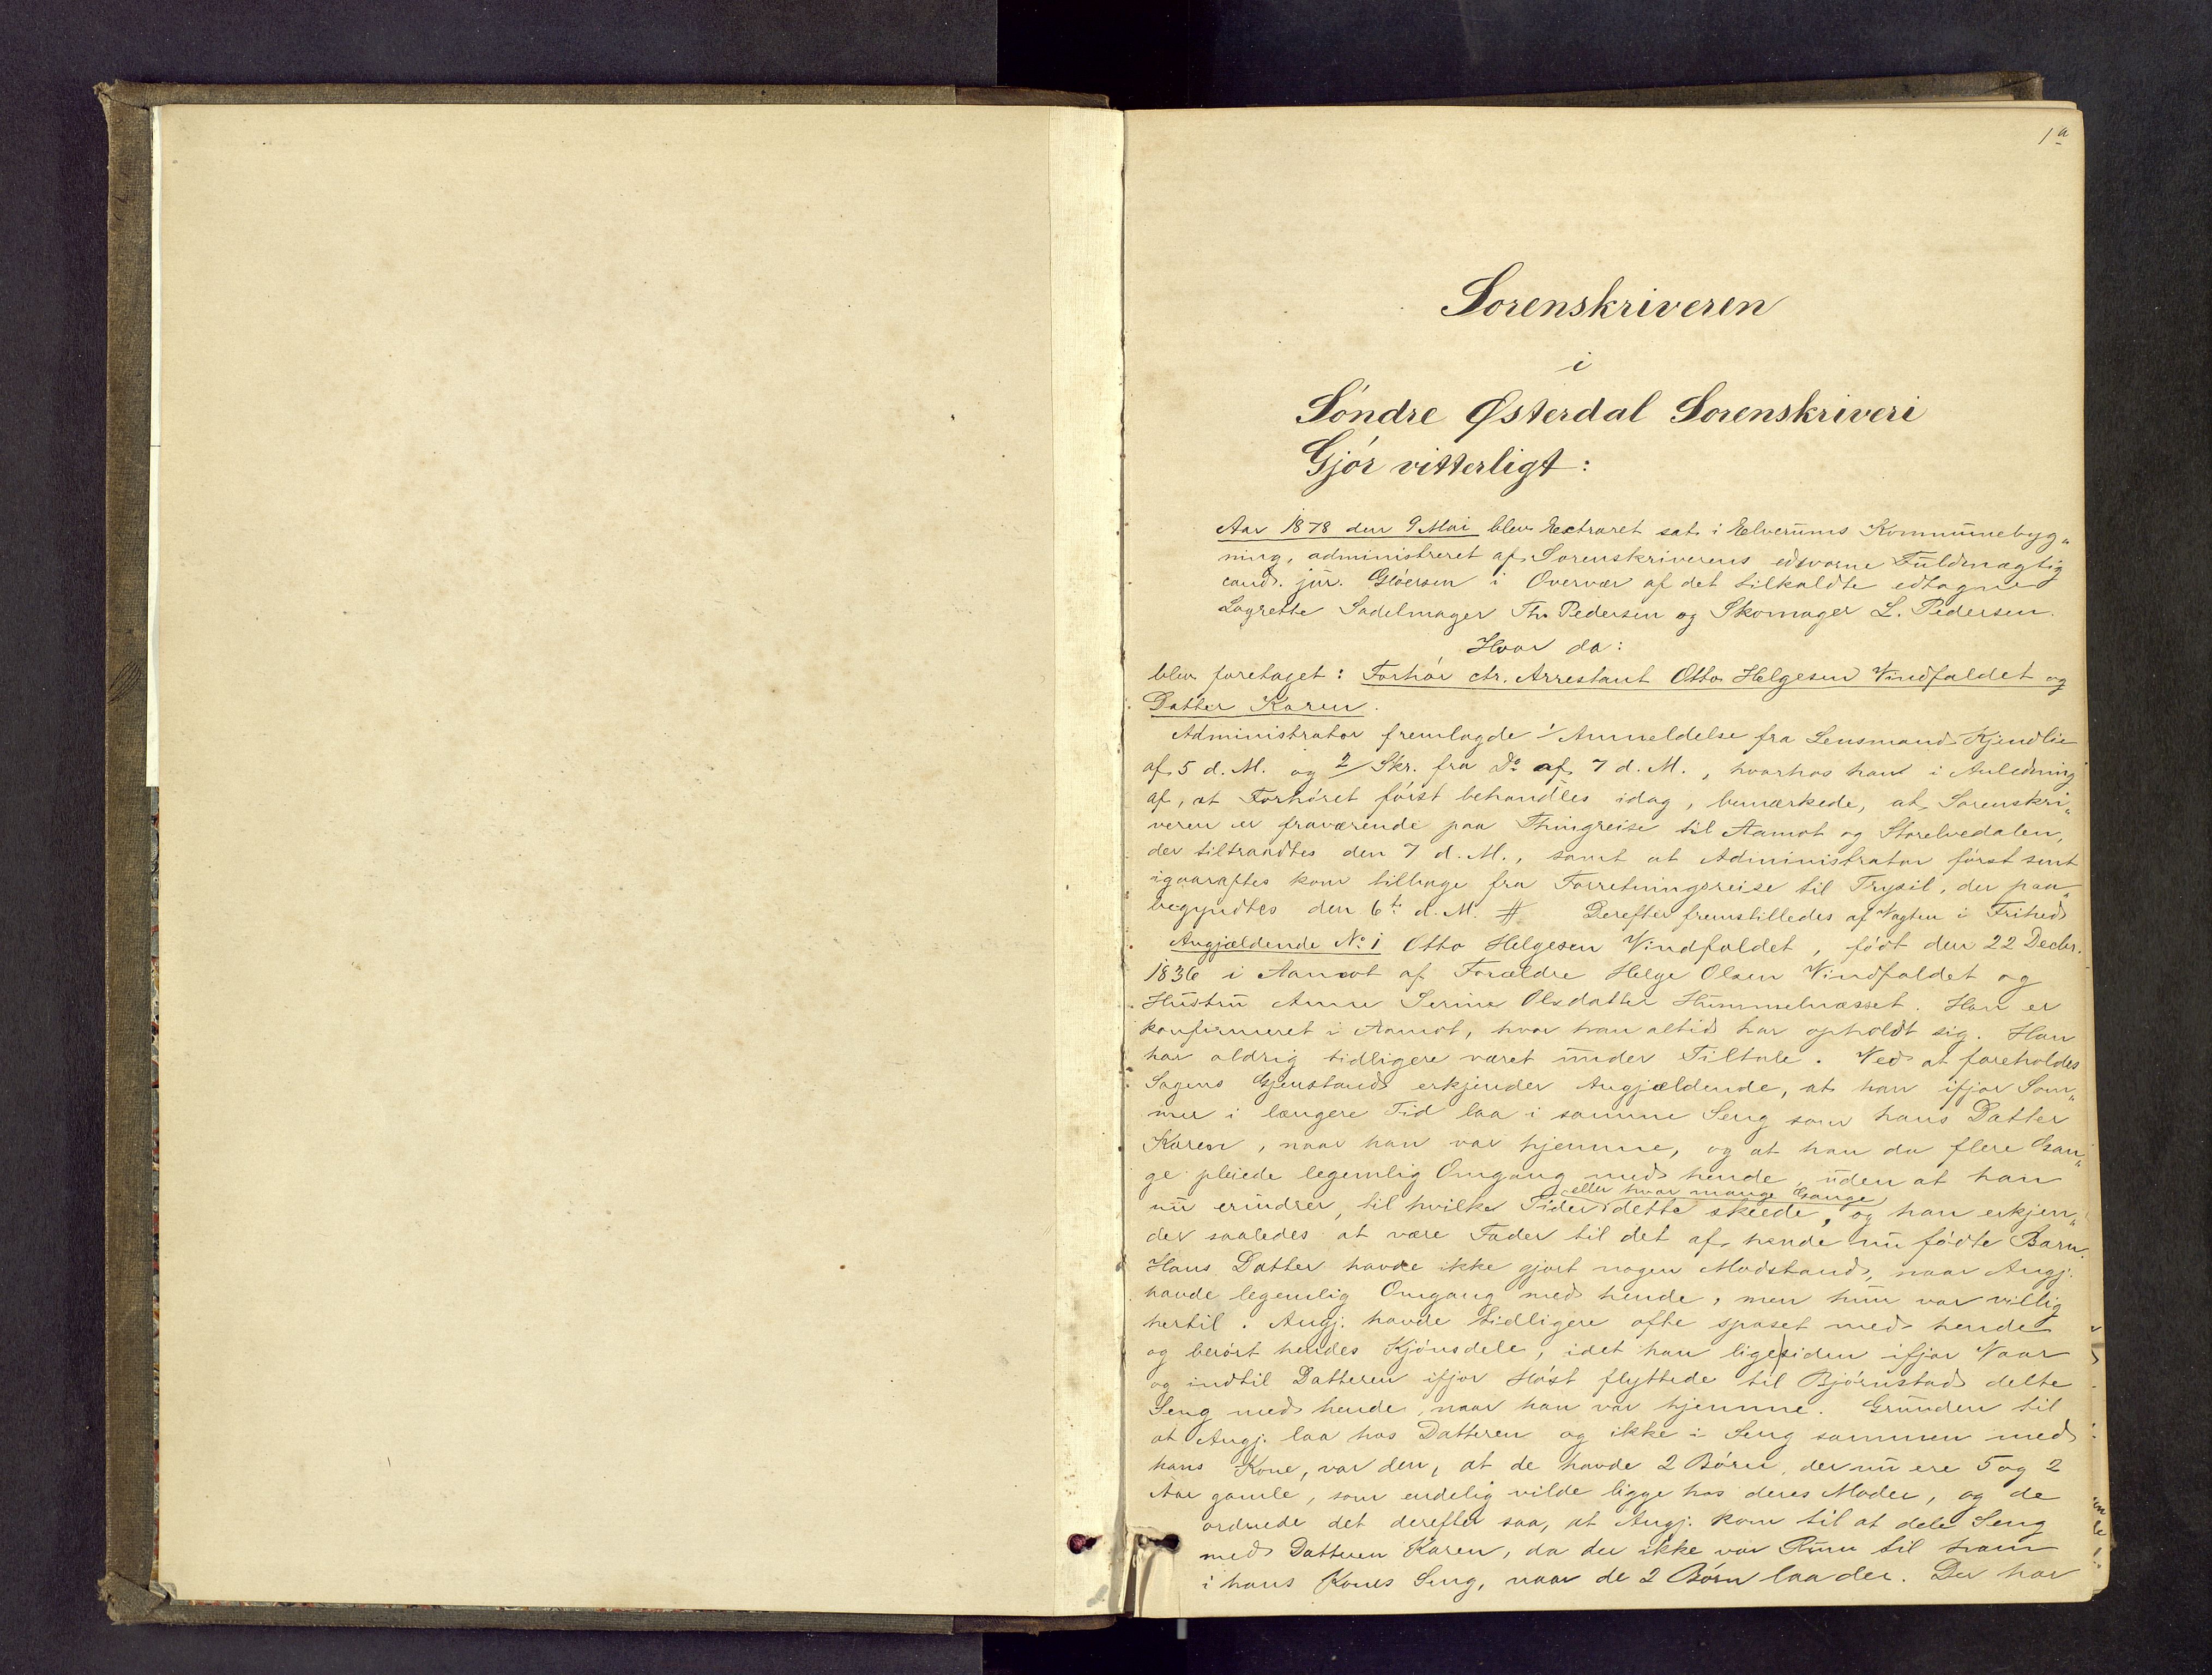 1a
Sorenskriveren
i
Söndre Østerdal Sorenskriveri
Gjör vitterligt:
Aar 1878 den 9 Mai blev Extraret sat i Elverums Kommunebyg„
ning, administreret af Sorenskriverens edsvorne Fuldmægtig
cand. jur. Glöersen i Overvær af det tilkaldte edtagne
Lagrette Sadelmager Th. Pedersen og Skomager L. Pedersen.
Hvor da:
blev foretaget: Forhör ctr. Arrestant Otto Helgesen Vindfaldet og
Datter Karen.
Administrator fremlagde 1/ Anmeldelse fra Lensmand Kjendlie
af 5 d. M. og 2/ Skr. fra Do af 7 d. M., hvorhos han i Anledning
af, at Forhöret först behandles idag, bemærkede, at Sorenskri„
veren er fraværende paa Thingreise til Aamot og Storelvedalen,
der tiltraadtes den 7 d. M., samt at Administrator först sent
igaaraftes kom tilbage fra Forretningsreise til Trysil, der paa„
begyndtes den 6t d. M. # Derefter fremstilledes af Vagten i Frihed
Angjældende No 1 Otto Helgesen Vindfaldet, födt den 22 Decbr.
1836 i Aamot af Forældre Helge Olsen Vindfaldet og
Hustru Anne Serine Olsdatter Hummelnæsset. Han er
konfirmeret i Aamot, hvor han altid har opholdt sig. Han
har aldrig tidligere været under Tiltale. Ved at foreholdes
Sagens Gjenstand erkjender Angjældende, at han ifjor Som„
mer i længere Tid laa i samme Seng som hans Datter
Karen, naar han var hjemme, og at han da flere Gan„
ge pleiede legemlig Omgang med hende, uden at han
eller hvor mange Gange
nu erindrer, til hvilke Tider dette skeede, og han erkjen„
der saaledes at være Fader til det af hende nu födte Barn.
Hans Datter havde ikke gjort nogen Modstand, naar Angj.
havde legemlig Omgang med hende, men hun var villig
hertil. Angj. havde tidligere ofte spøset med hende
og berört hendes Kjönsdele, idet han lige siden ifjor Vaar
og indtil Datteren ifjor Höst flyttede til Björnstad delte
Seng med hende, naar han var hjemme. Grunden til
at Angj. laa hos Datteren og ikke i Seng sammen med
hans Kone, var den, at de havde 2 Börn, der nu ere 5 og 2
Aar gamle, som endelig vilde ligge hos deres Moder, og de
ordnede det derefter saa, at Angj. kom til at dele Seng
med Datteren Karen, da der ikke var Rum til ham
i hans Kones Seng, naar de 2 Börn laa der. Der har